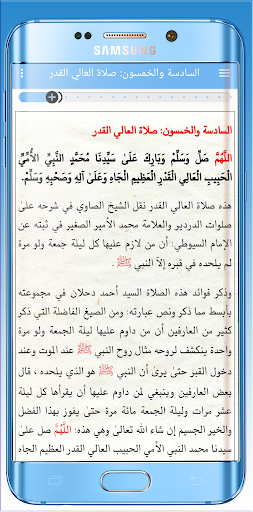 SAMSUNG
السادسة والخمسون: صلاة العالي القدر
السادسة والخمسون: صلاة العالي القدر
اللَّهُمَّ صَلِّ وَسَلِّمْ وَبَارِكْ عَلَىٰ سَيِّدِنَا مُحَمَّدٍ النَّبِيِّ الأُمِّيِّ
الْحَبِيبِ الْعَالِي الْقَدْرِ الْعَظِيمِ الْجَاهِ وَعَلَىٰ آلِهِ وَصَحْبِهِ وَسَلِّمْ.
هذه صلاة العالي القدر نقل الشيخ الصاوي في شرحه علىٰ
صلوات الدردير والعلامة محمد الأمير الصغير في ثبته عن
الإمام السيوطي: أن من لازم عليها كل ليلة جمعة ولو مرة
لم يلحده في قبره إلاّ النبي ﷺ .
وذكر فوائد هذه الصلاة السيد أحمد دحلان في مجموعته
بأبسط مما ذكر ونص عبارته: ومن الصيغ الفاضلة التي ذكر
كثير من العارفين أن من داوم عليها ليلة الجمعة ولو مرة
واحدة ينكشف لروحه مثال روح النبي ﷺ عند الموت وعند
دخول القبر حتىٰ يرىٰ أن النبي ﷺ هو الذي يلحده ، قال
بعض العارفين وينبغي لمن داوم عليها أن يقرأها كل ليلة
عشر مرات وليلة الجمعة مائة مرة حتىٰ يفوز بهذا الفضل
والخير الجسيم إن شاء الله تعالىٰ وهي هذه: اللَّهُمَّ صل علىٰ
سيدنا محمد النبي الأمي الحبيب العالي القدر العظيم الجاه